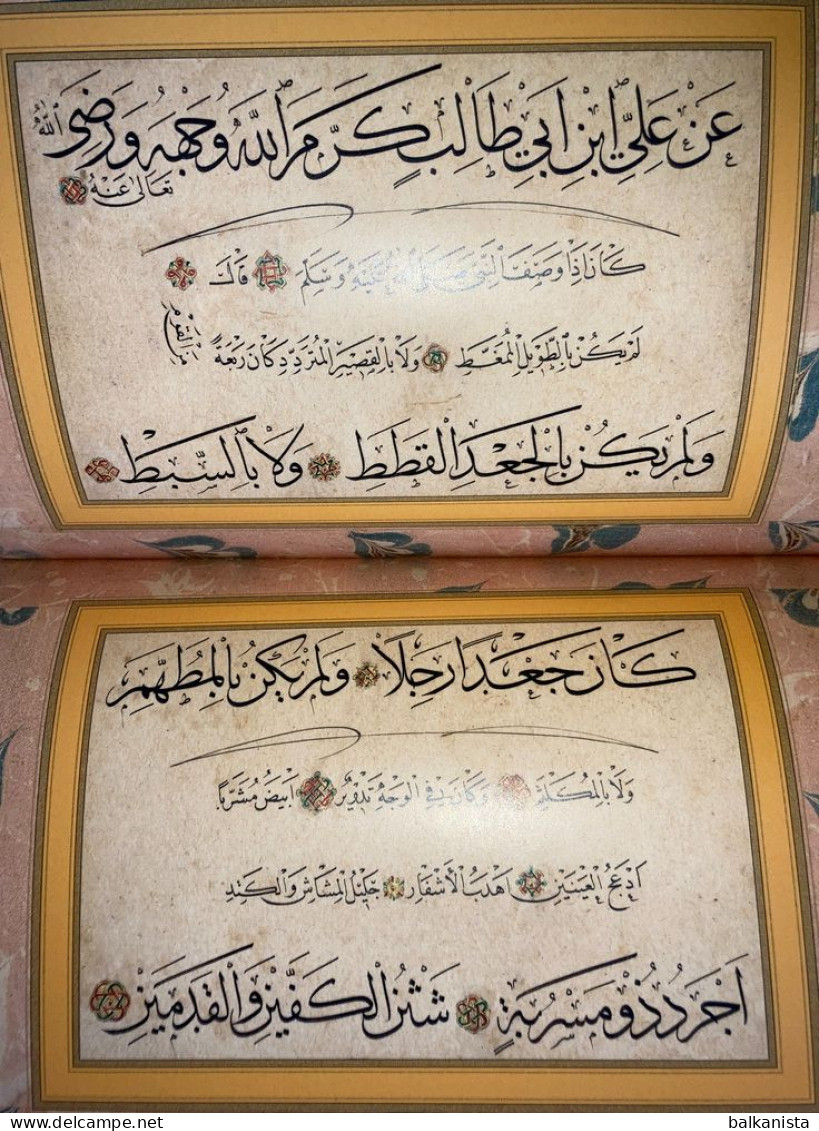 عَنْ عَلِيِّ ابْنِ اَبِي طَالِبٍ كَرَّمَ اللّٰهُ وَجْهَهُ وَرَضِيَ اللّٰهُ
تَعَالٰى عَنْهُ
كَانَ اِذَا وَصَفَ النَّبِيَّ صَلَّى اللّٰهُ عَلَيْهِ وَسَلَّمَ قَالَ
لَمْ يَكُنْ بِالطَّوِيلِ الْمُمَّغِطِ وَلَا بِالْقَصِيرِ الْمُتَرَدِّدِ كَانَ رَبْعَةً
مِنَ الْقَوْمِ
وَلَمْ يَكُنْ بِالْجَعْدِ الْقَطَطِ وَلَا بِالسَّبِطِ
كَانَ جَعْدًا رَجِلًا وَلَمْ يَكُنْ بِالْمُطَهَّمِ
وَلَا بِالْمُكَلْثَمِ وَكَانَ فِي الْوَجْهِ تَدْوِيرٌ اَبْيَضُ مُشْرَبًا
اَدْعَجُ الْعَيْنَيْنِ اَهْدَبُ الْاَشْفَارِ جَلِيلُ الْمُشَاشِ وَالْكَتَدِ
اَجْرَدُ ذُو مَسْرُبَةٍ شَثْنُ الْكَفَّيْنِ وَالْقَدَمَيْنِ
balkanista